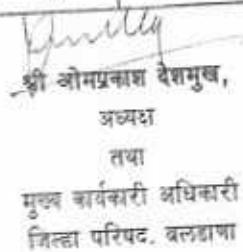 श्री ओमप्रकाश देशमुख,
अध्यक्ष
तथा
मुख्य कार्यकारी अधिकारी
जिल्हा परिषद. बुलडाणा